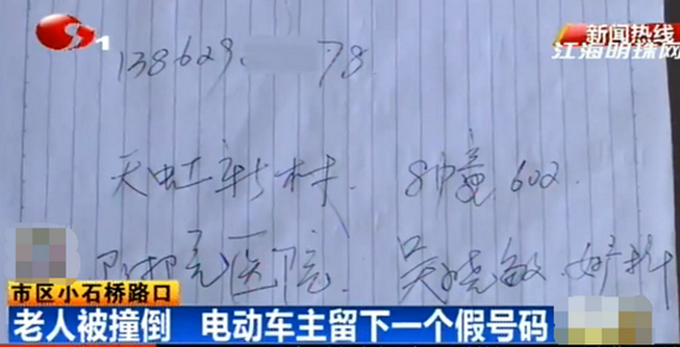 1
新闻热线
江海明珠网
138629 78
天虹新村 8幢 602
医院 吴晓敏 妇科
市区小石桥路口
老人被撞倒 电动车主留下一个假号码